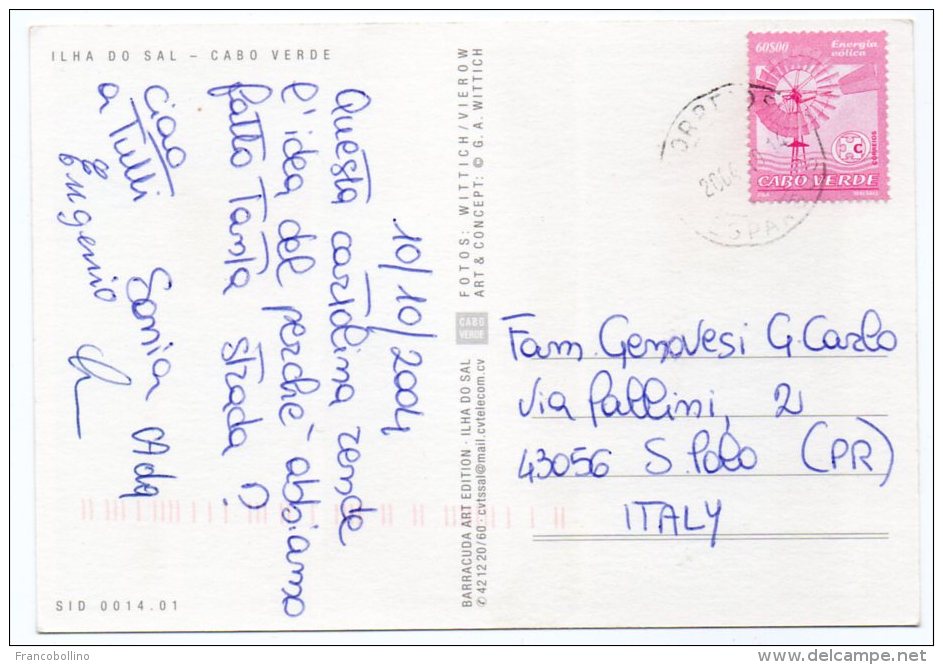 ILHA DO SAL – CABO VERDE
10/10/2004
Questa cartolina rende
l'idea del perchè abbiamo
fatto tanta strada
Ciao Sonia Ada
a Tutti
Eugenio
SID 0014.01
FOTOS: WITTICH / VIEROW
ART & CONCEPT: © G. A. WITTICH
CABO
VERDE
BARRACUDA ART EDITION · ILHA DO SAL
✆ 42 12 20/60 · cvtssal@mail.cvtelecom.cv
60$00
Energia
eólica
CORREIOS
CABO VERDE
ESPAR
Fam. Genovesi G. Carlo
Via Pallini, 2
43056 S. Polo (PR)
ITALY
Francobollino
delcampe.net